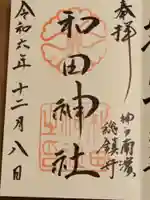 奉拝
神戸南濱
総鎮守
和田神社
令和六年十二月八日